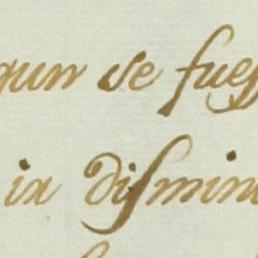 gun se fuess
ia dismin